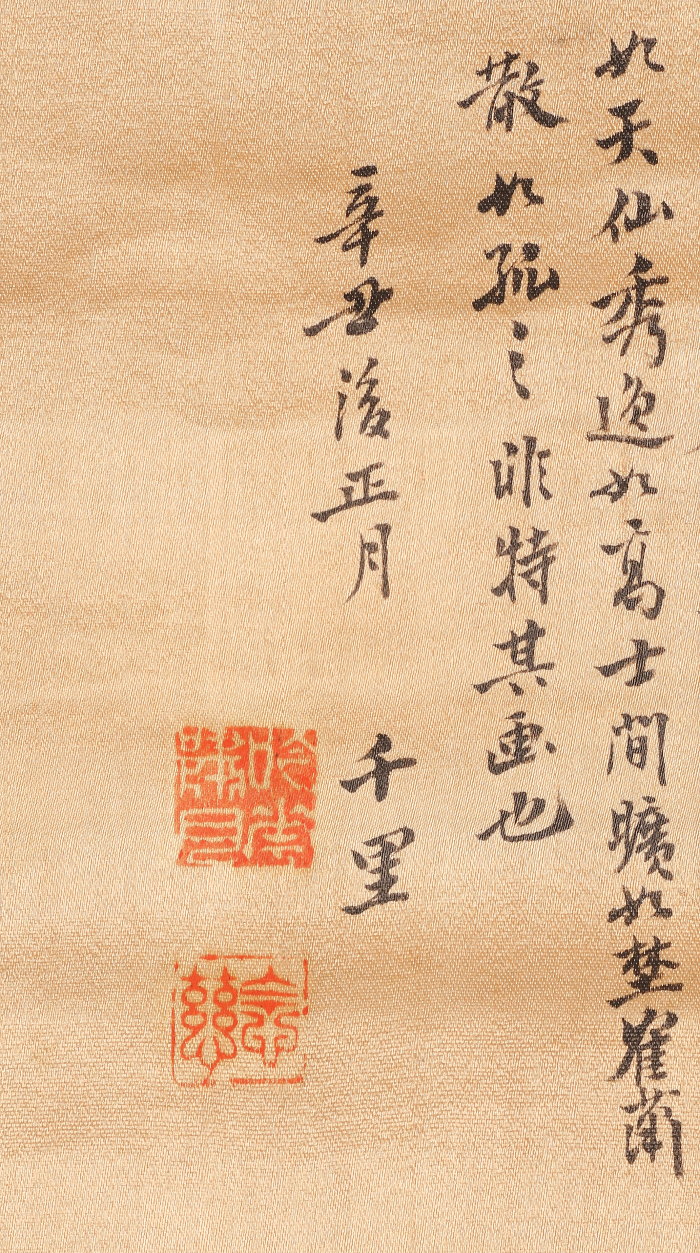 如天仙秀逸如高士間曠如埜雀蘭
散如孤之非特其画也
辛丑後正月
千里